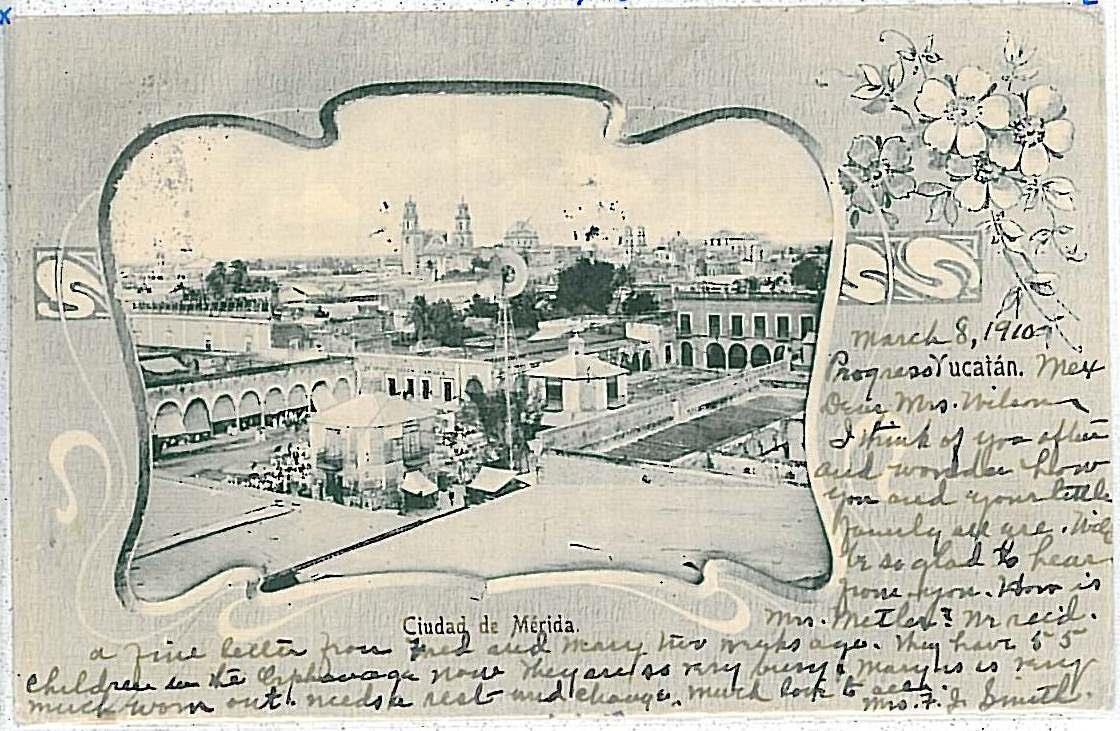 March 8, 1910
Progreso Yucatán. Mex
Dear Mrs. Wilson
I think of you often
and wonder how
you and your little
family all are. Will
be so glad to hear
from you. How is
Ciudad de Mérida.
Mrs. Metler? We rec'd.
a fine letter from Fred and Mary two weeks ago. They have 55
children in the Orphanage now they are so very busy; Mary is is very
much worn out. needs a rest and change. much love to all.
Mrs. F. J. Smith.